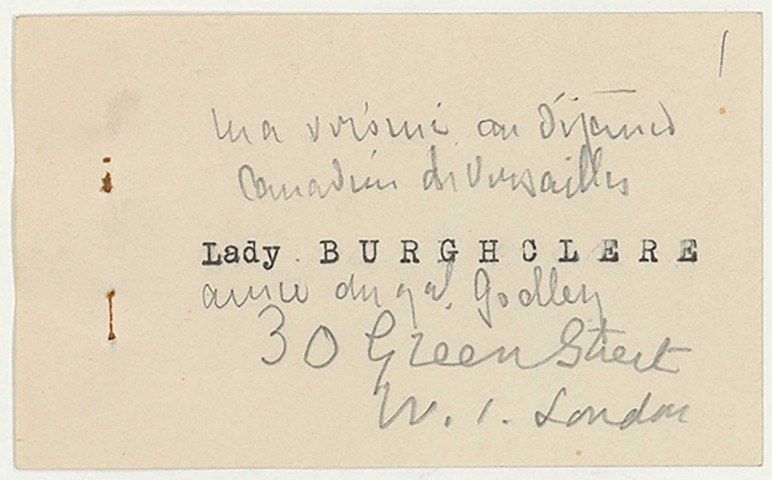 1
ma voisine au déjeuner
Canadien de Versailles
Lady BURGHCLERE
amie du gal. Godley
30 Green Street
W. 1. London